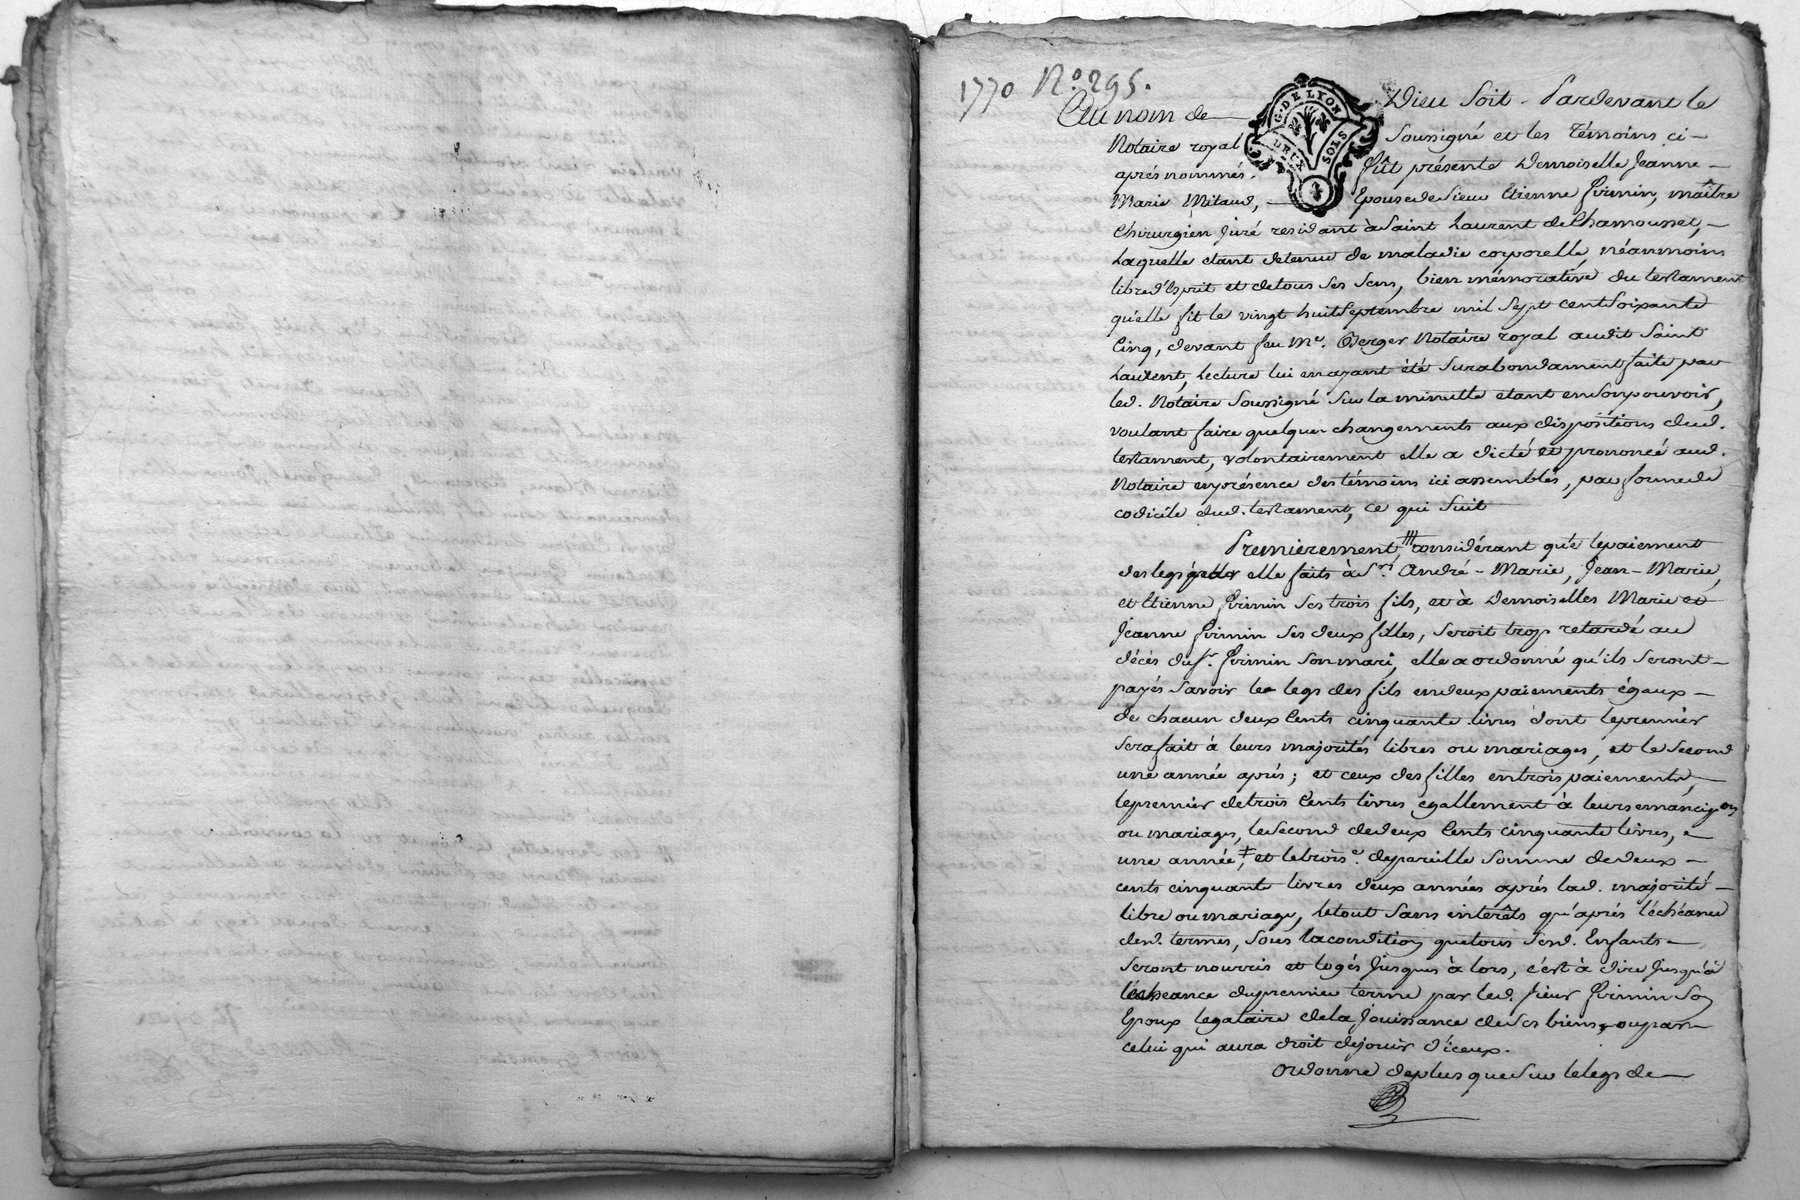 1770 N.º 295.
G. DE LYON
DEUX SOLS
Au nom de Dieu Soit. Pardevant le
Notaire royal Soussigné et les témoins ci-
après nommés. fût présente Demoiselle Jeanne-
Marie Mitaud, Epouse de Sieur Etienne firmin, maître
Chirurgien Juré residant à Saint Laurent de Chamousset,
Laquelle etant detenue de maladie corporelle, néanmoins
libre d'Esprit et de tous ses Sens, bien mémorative du testament
qu'elle fit le vingt huit Septembre mil Sept cent Soixante
Cinq, devant feu Me. Berger Notaire royal audit Saint
Laurent, Lecture lui en ayant été Surabondament faite par
led. Notaire Soussigné Sur la minutte etant en Son pouvoir,
voulant faire quelques changements aux dispositions dud.
testament, volontairement elle a dicté et prononcé aud.
Notaire en présence des témoins ici assemblés, par forme de
codicile dud. testament, ce qui Suit
Premièrement, considérant que le paiement
des legs par elle faits à Srs. André-Marie, Jean-Marie,
et Etienne firmin Ses trois fils, et à Demoiselles Marie et
Jeanne firmin Ses deux filles, Seroit trop retardé au
décès du Sr. firmin Son mari, elle a ordonné qu'ils Seront
payés Savoir les legs des fils en deux paiements égaux
de chacun deux Cents cinquante livres dont le premier
Sera fait à leurs majorités libres ou mariages, et le Second
une année après; et ceux des filles en trois paiements,
le premier de trois Cents livres egallement à leurs emancipons
ou mariages, le Second de deux Cents cinquante livres,
une année, et le trois.e de pareille Somme de deux
cents cinquante livres deux années après lad. majorité
libre ou mariage, le tout Sans intérêts qu'après l'échéance
desd. termes, Sous la condition que tous Sesd. Enfants
Seront nourris et logés Jusques à lors, c'est à dire Jusqu'à
l'écheance du premier terme par led. Sieur firmin Son
Epoux legataire de la Jouissance de Ses biens, ou par
celui qui aura droit de jouir d'iceux.
Ordonne de plus que Sur le legs de